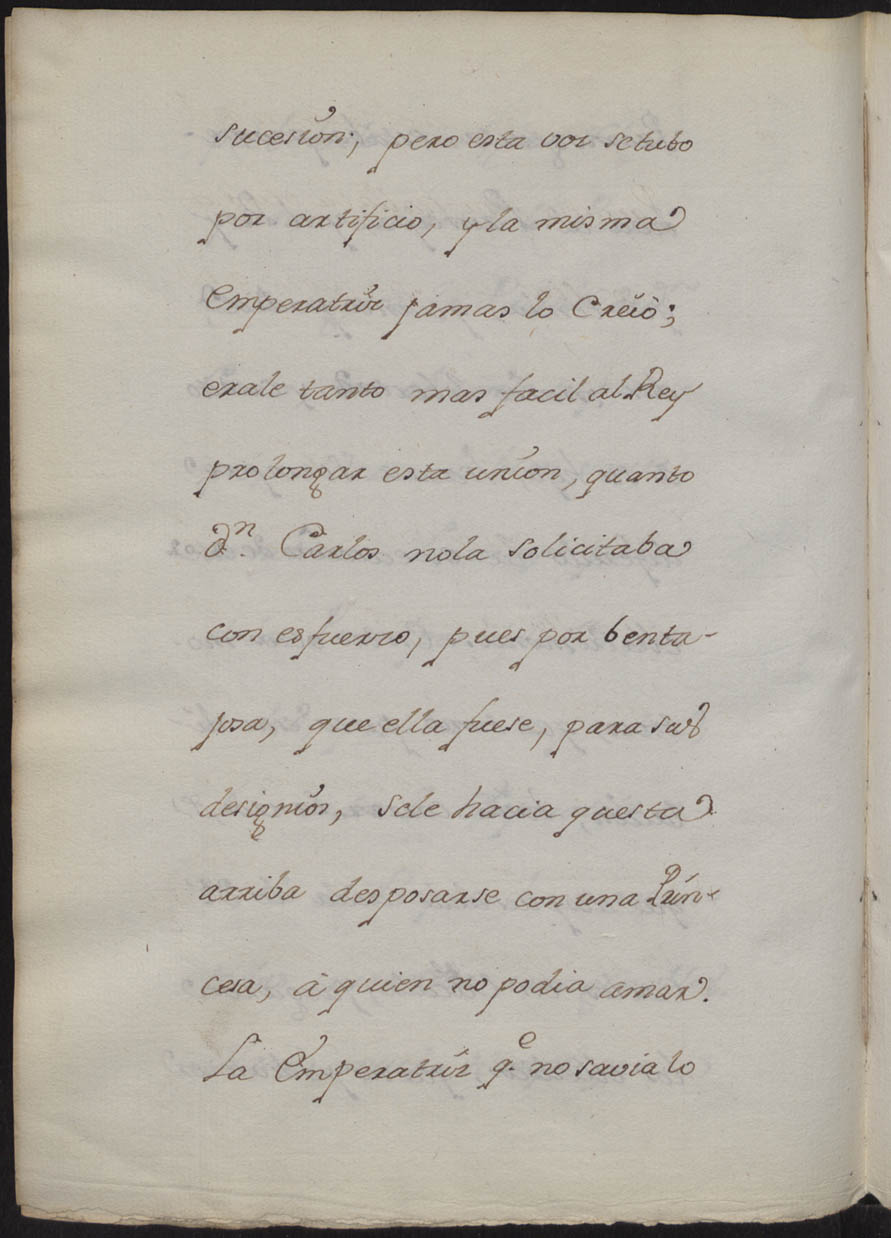 sucesion; pero esta voz se tubo
por artificio, y la misma
Emperatriz jamas lo Creió;
erale tanto mas facil al Rey
prolongar esta union, quanto
Dn. Carlos no la solicitaba
con esfuerzo, pues por benta-
josa, que ella fuese, para sus
designios, sele hacia questa
arriba desposarse con una Prin-
cesa, á quien no podia amar.
La Emperatriz qe. no savia lo